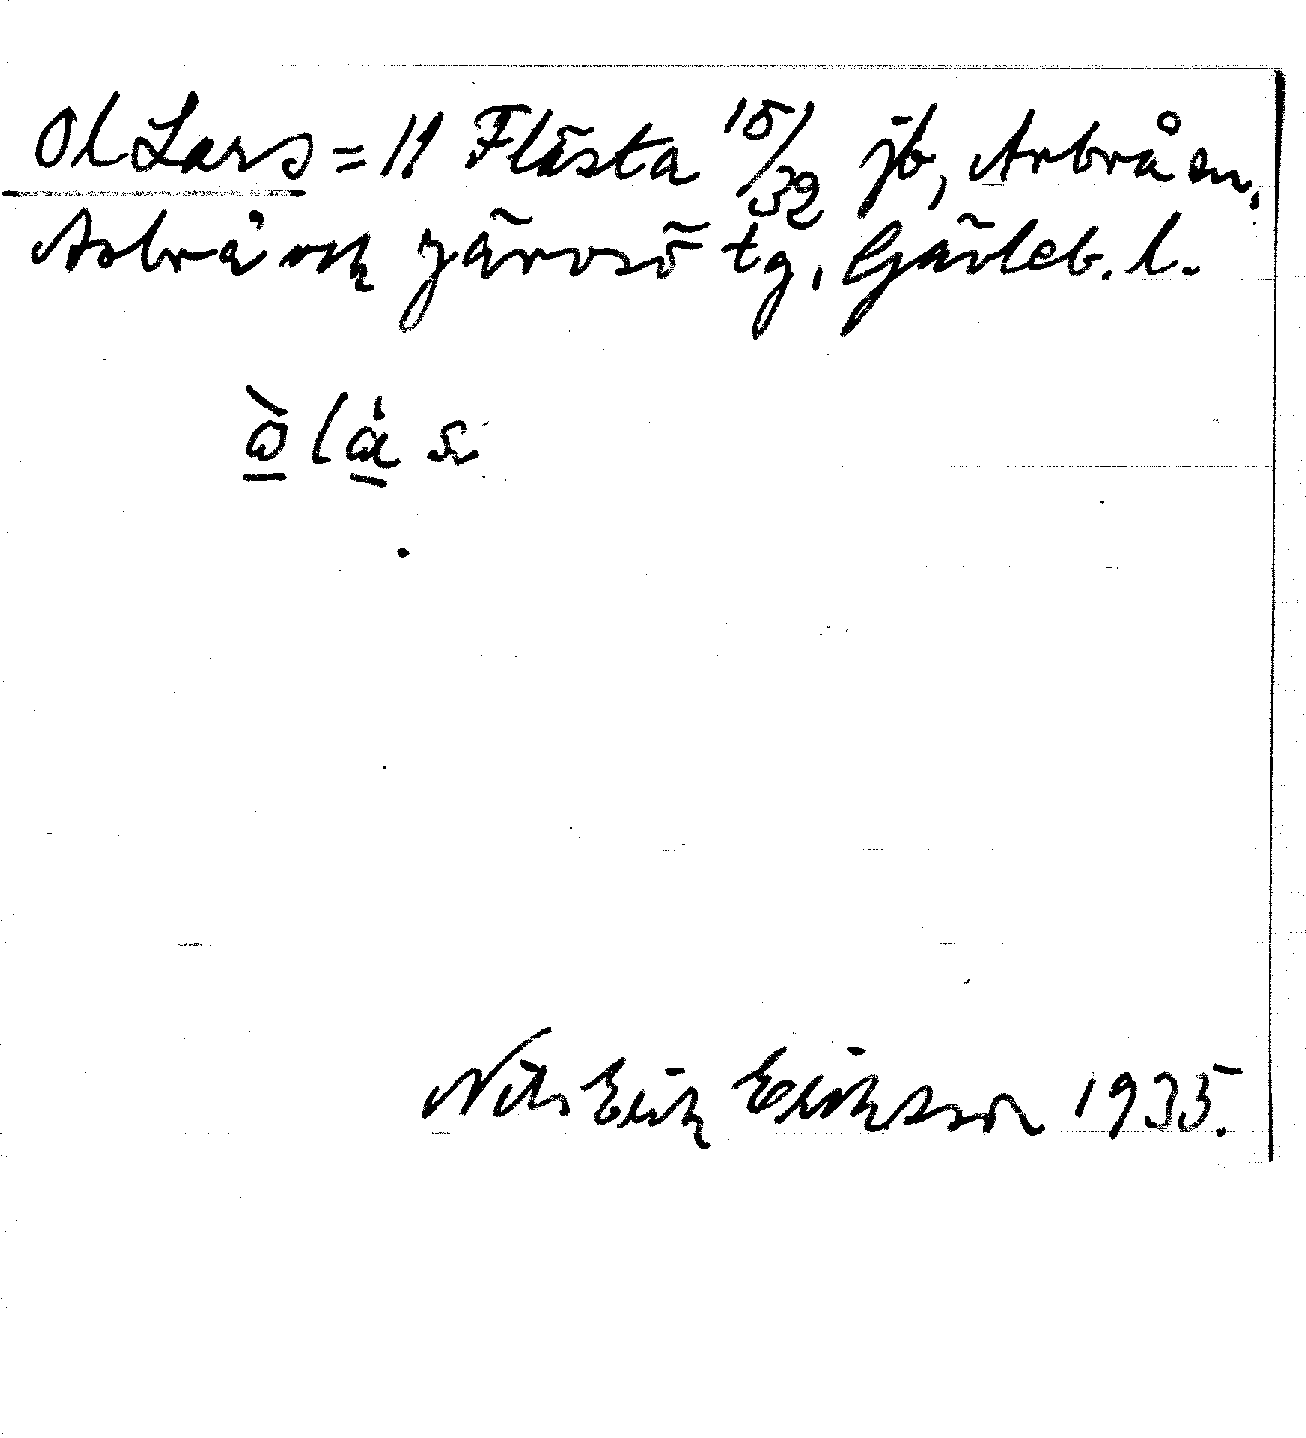 Ol Lars = 11 Flästa 15/32 jb, Arbrå sn,
Arbrå och Järvsö tg, Gävleb. l.
Nils Erik Eriksson 1935.